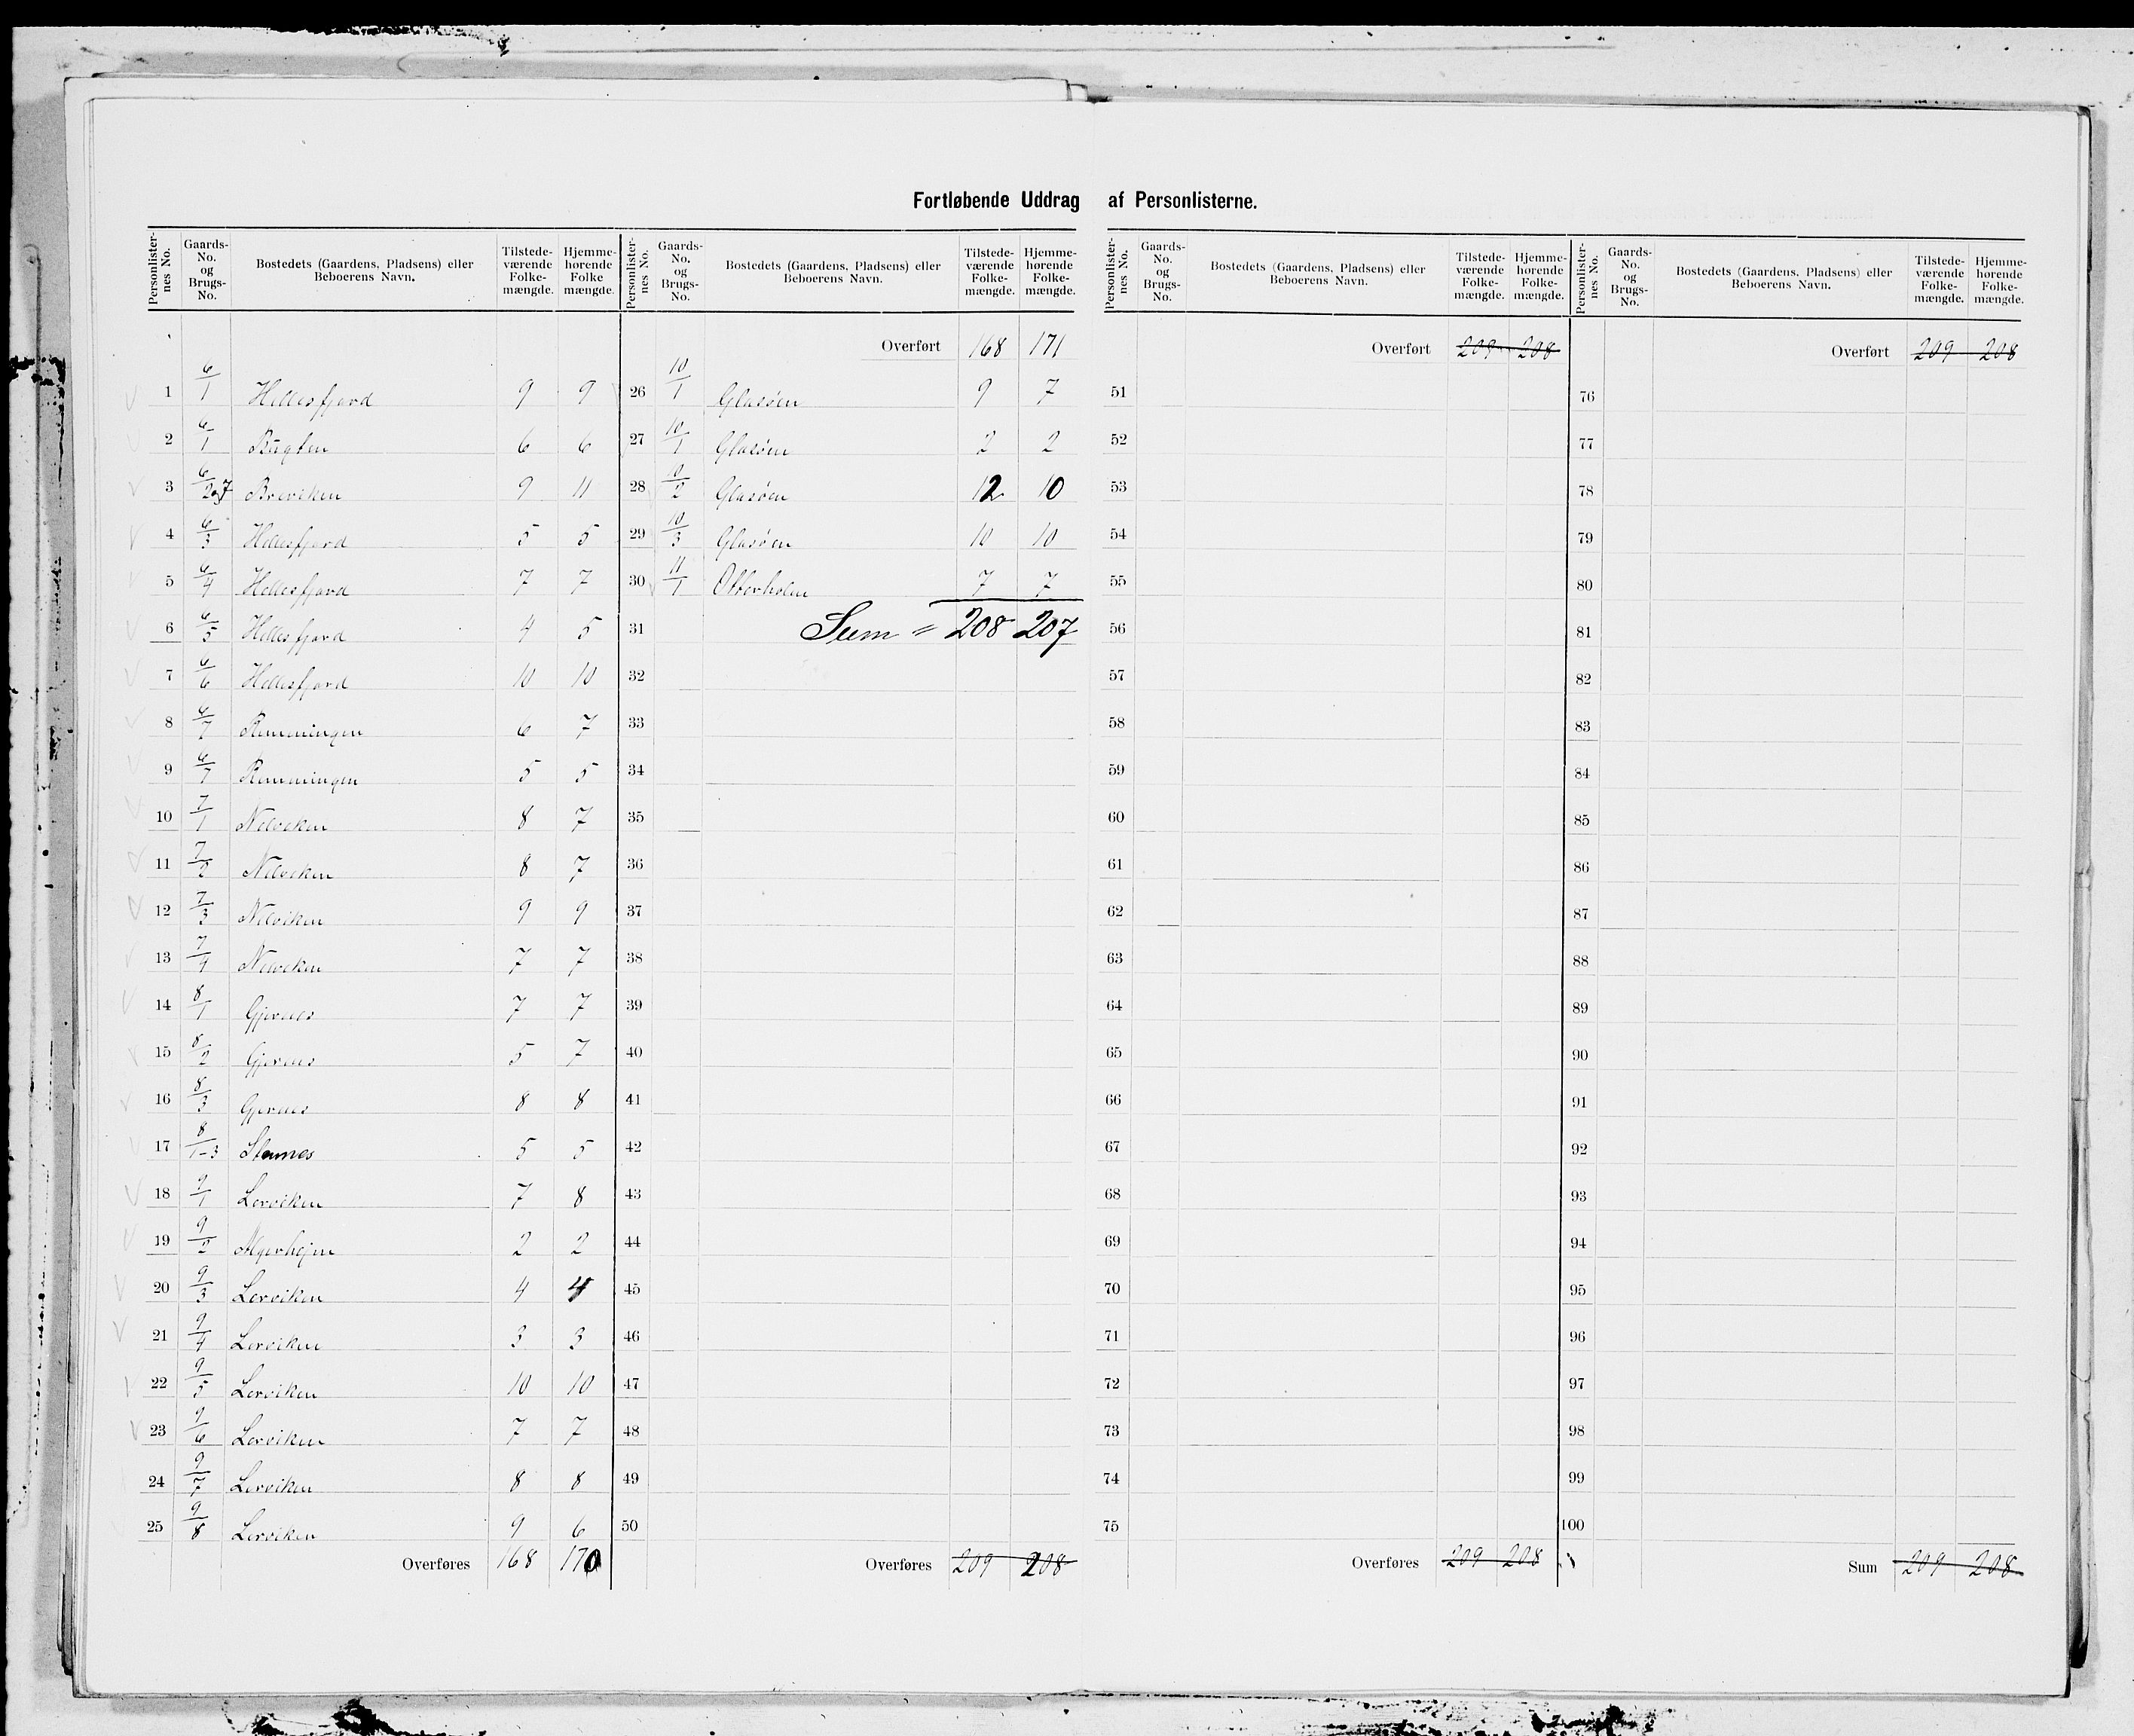 Fortløbende Uddrag af Personlisterne.
Personlister-nes No. Gaards-No. og Brugs-No. Bostedets (Gaardens, Pladsens) eller Beboerens Navn. Tilstede-værende Folke-mængde. Hjemme-hørende Folke-mængde.
Personlister-nes No. Gaards-No. og Brugs-No. Bostedets (Gaardens, Pladsens) eller Beboerens Navn. Tilstede-værende Folke-mængde. Hjemme-hørende Folke-mængde.
Personlister-nes No. Gaards-No. og Brugs-No. Bostedets (Gaardens, Pladsens) eller Beboerens Navn. Tilstede-værende Folke-mængde. Hjemme-hørende Folke-mængde.
Personlister-nes No. Gaards-No. og Brugs-No. Bostedets (Gaardens, Pladsens) eller Beboerens Navn. Tilstede-værende Folke-mængde. Hjemme-hørende Folke-mængde.
1 6/1 Hellesfjord 9 9
2 6/1 Bugten 6 6
3 6/2 og 7 Breviken 9 11
4 6/3 Hellesfjord 5 5
5 6/4 Hellesfjord 7 7
6 6/5 Hellesfjord 4 5
7 6/6 Hellesfjord 10 10
8 6/7 Remmingen 6 7
9 6/7 Remmingen 5 5
10 7/1 Nelviken 8 7
11 7/2 Nelviken 8 7
12 7/3 Nelviken 9 9
13 7/4 Nelviken 7 7
14 8/1 Gjernes 7 7
15 8/2 Gjernes 5 7
16 8/3 Gjernes 8 8
17 8/1-3 Stamnes 5 5
18 9/1 Lerviken 7 8
19 9/2 2 2
20 9/3 Lerviken 4 4
21 9/4 Lerviken 3 3
22 9/5 Lerviken 10 10
23 9/6 Lerviken 7 7
24 9/7 Lerviken 8 8
25 9/8 Lerviken 9 6
Overføres 168 170
Overført 168 171
26 10/1 Glasøen 9 7
27 10/1 Glasøen 2 2
28 10/2 Glasøen 12 10
29 10/3 Glasøen 10 10
30 11/1 Otterholm 7 7
31 Sum = 208 207
32
33
34
35
36
37
38
39
40
41
42
43
44
45
46
47
48
49
50
Overføres 209 208
Overført 209 208
51
52
53
54
55
56
57
58
59
60
61
62
63
64
65
66
67
68
69
70
71
72
73
74
75
Overføres 209 208
Overført 209 208
76
77
78
79
80
81
82
83
84
85
86
87
88
89
90
91
92
93
94
95
96
97
98
99
100
Sum 209 208